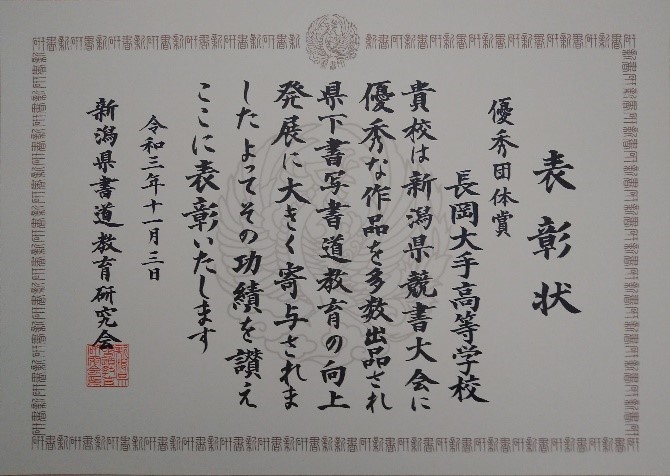 表彰状
優秀団体賞
長岡大手高等学校
貴校は新潟県競書大会に
優秀な作品を多数出品され
県下書写書道教育の向上
発展に大きく寄与されま
したよってその功績を讃え
ここに表彰いたします
令和三年十一月三日
新潟県書道教育研究会